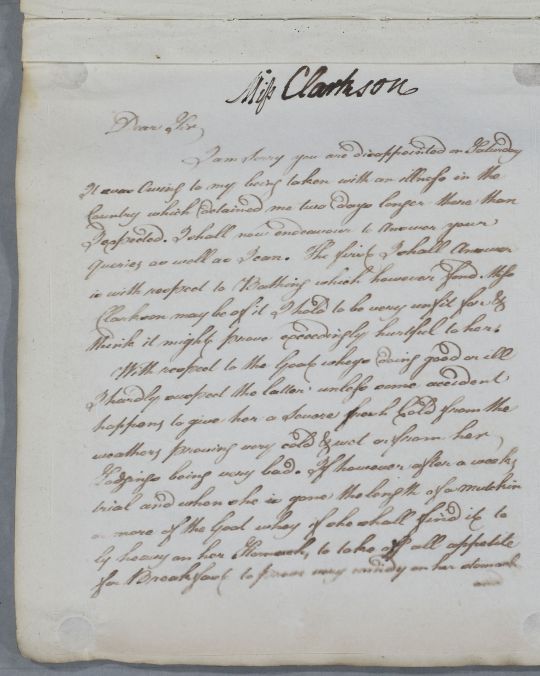 Miss Clarkson
Dear Sir,
I am Sorry you are disappointed on Saturday
It was Owing to my being taken with an illness in the
Country which detained me two days longer there than
I expected. I shall now endeavour to Answer your
Queries as well as I can. The first I shall Answer
is with respect to Bathing which however fond Miss
Clarkson may be of it I hold to be very unfit for &
think it might prove exceedingly hurtful to her.
With respect to the Goat wheys doing good or ill
I hardly suspect the latter unless some accident
happens to give her a Severe fresh Cold from the
weathers proving very cold & wet or from her
Lodgings being very bad. If however after a weeks
trial and when she is gone the length of a mutchkin
or more of the Goat whey if she shall find it to
ly heavy on her Stomach, to take off all appetite
for Breakfast to prove very windy on her stomach
and